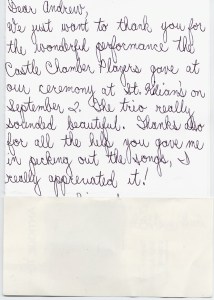 Dear Andrew,
We just want to thank you for
the wonderful performance the
Castle Chamber Players gave at
our ceremony at St. Kilian's on
September 2. The trio really
sounded beautiful. Thanks also
for all the help you gave me
in picking out the songs, I
really appreciated it!